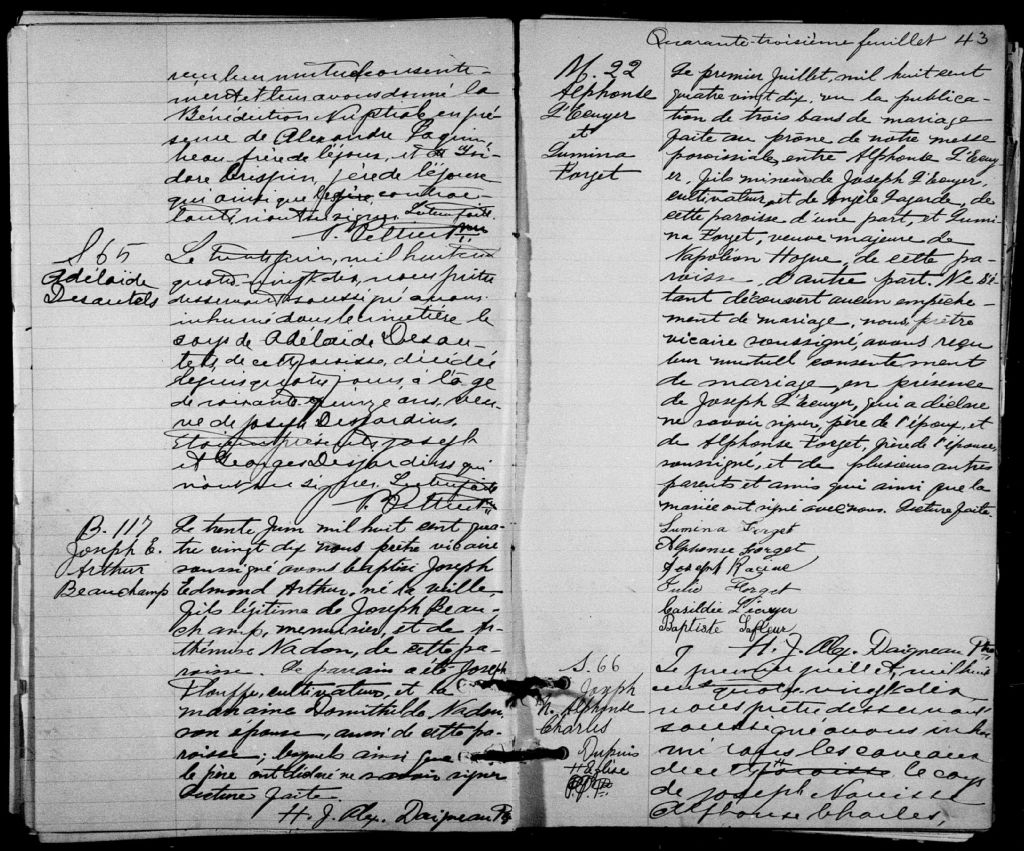 reçu leur mutuel consente-
ment et leur avons donné la
Bénédiction Nuptiale en pré-
sence de Alexandre Gagui-
neau frère de l'époux, et Isi-
dore Crespin, père de l'épouse
qui ainsi que contrac-
tants n'ont su signer. Lecture faite.
P. Peltier ptre
S 65
Adélaïde
Desautels
Le trente juin, mil huit cent
quatre vingt dix, nous prêtre
desservant soussigné avons
inhumé dans le cimetière le
corps de Adélaïde Desau-
tels, de cette paroisse, décédée
depuis quatre jours, à l'âge
de soixante quinze ans, veu-
ve de Joseph Desjardins.
Etaient présents, Joseph
et Georges Desjardins qui
n'ont su signer. Lecture faite
P. Peltier ptre
B. 117
Joseph E.
Arthur
Beauchamp
Le trente Juin mil huit cent qua-
tre vingt dix nous prêtre vicaire
soussigné avons baptisé Joseph
Edmond Arthur, né la veille,
fils légitime de Joseph Beau-
champ, menuisier, et de Ar-
thémise Nadon, de cette pa-
roisse. Le parrain a été Joseph
Plouffe, cultivateur, et la
marraine Domithilde Nadon
son épouse, aussi de cette pa-
roisse; lesquels ainsi que
le père ont déclaré ne savoir signer
Lecture faite.
H. J. Alex. Daigneau Ptre
Quarante-troisième feuillet 43
M. 22
Alphonse
L'Ecuyer
et
Lumina
Forget
Le premier Juillet, mil huit cent
quatre vingt dix, vu la publica-
tion de trois bans de mariage
faite au prône de notre messe
paroissiale, entre Alphonse L'Ecuy-
er, fils mineur de Joseph L'Ecuyer,
cultivateur, et de Angèle Lagarde, de
cette paroisse, d'une part, et Lumi-
na Forget, veuve majeure de
Napoléon Hogue, de cette pa-
roisse, d'autre part. Ne s'é-
tant découvert aucun empêche-
ment de mariage, nous, prêtre
vicaire soussigné, avons reçu
leur mutuel consentement
de mariage, en présence
de Joseph L'Ecuyer, qui a déclaré
ne savoir signer, père de l'époux, et
de Alphonse Forget, père de l'épouse,
soussigné, et de plusieurs autres
parents et amis qui ainsi que la
mariée ont signé avec nous. Lecture faite.
Lumina Forget
Alphonse Forget
Joseph Racine
Julie Forget
Casildée L'écuyer
Baptiste Lafleur
H. J. Alex. Daigneau Ptre
S. 66
Joseph
N. Alphonse
Charles
Dupuis
Le premier juillet, mil huit
cent quatre-vingt dix
nous prêtre desservant
soussigné avons inhu-
mé sous les caveaux
de cette paroisse le corps
de Joseph Narcisse
Alphonse Charles,